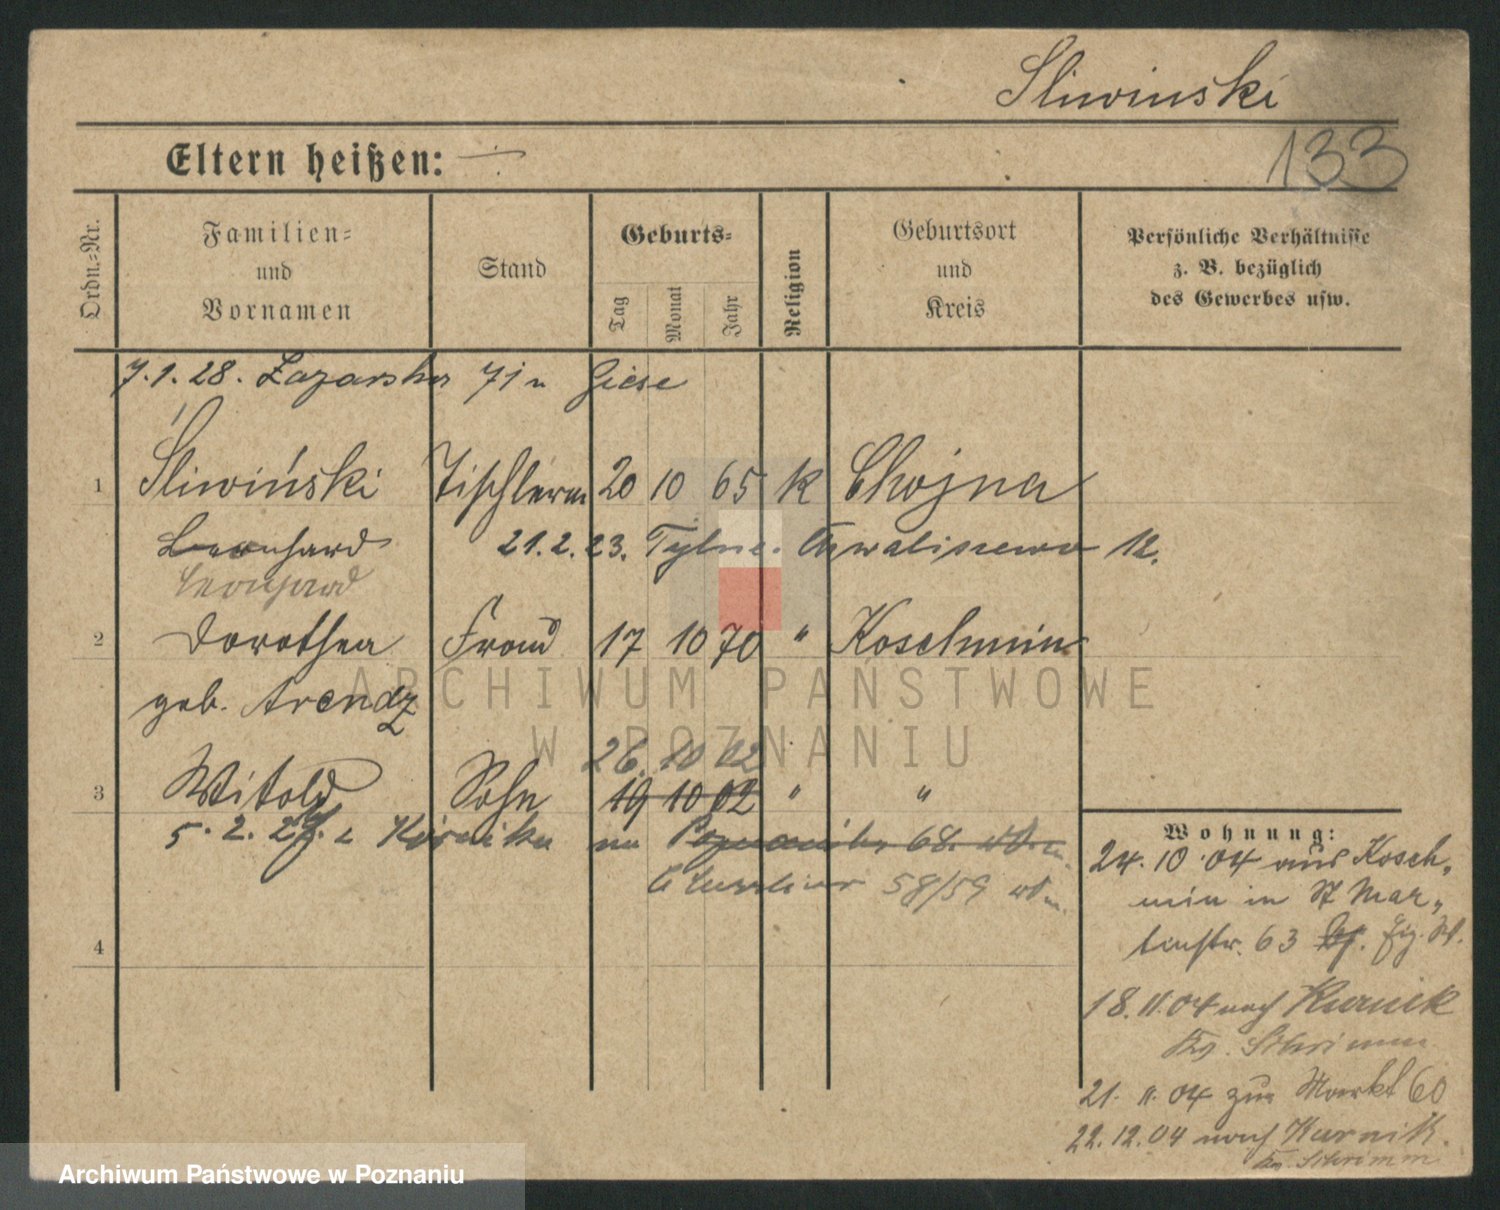 Sliwinski
133
Eltern heißen:
Ordn.-Nr.
Familien-
und
Vornamen
Stand
Geburts-
Tag
Monat
Jahr
Religion
Geburtsort
und
Kreis
Persönliche Verhältnisse
z. B. bezüglich
des Gewerbes usw.
7.1.28. Lazarska 71 Giese
1 Śliwiński Tischlerm 20 10 65 k Chojna
Leonhard 21.2.23. Tylne. Chwaliszewo 12.
Leonhard
2 Dorothea Frau 17 10 70 " Koschmin
geb. Arendz
26. 10 02
3 Witold Sohn 19 10 02 " "
5. 2. 27. z Kórnika na 68.
58/59
4
Wohnung:
24.10.04 aus Kosch-
min in St Mar-
tinstr. 63
18.11.04 nach Kurnik
Kr. Schrimm
21.11.04 zur Markt 60
22.12.04 nach Kurnik.
Kr. Schrimm
ARCHIWUM PAŃSTWOWE
W POZNANIU
Archiwum Państwowe w Poznaniu